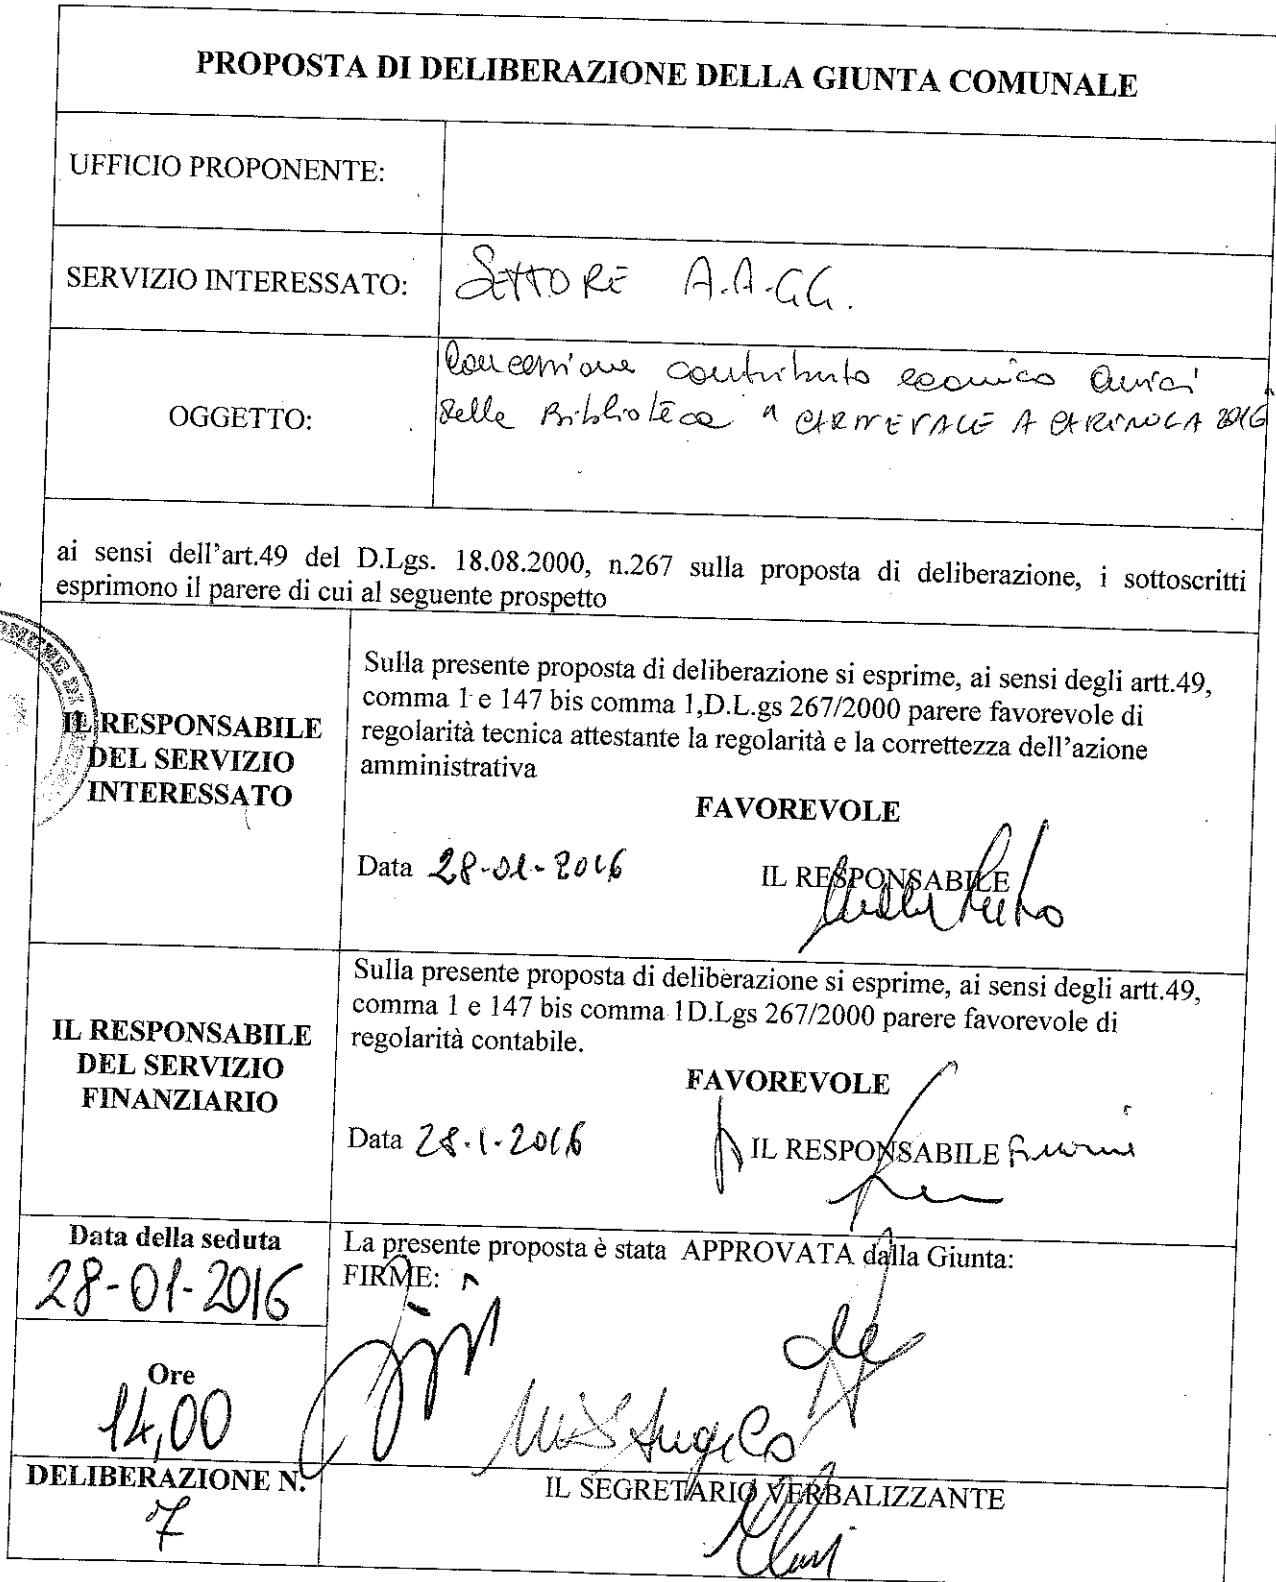 PROPOSTA DI DELIBERAZIONE DELLA GIUNTA COMUNALE
UFFICIO PROPONENTE:
SERVIZIO INTERESSATO: SETTORE A.A.GG.
OGGETTO:
Concessione contributo economico Amici
della Biblioteca "CARNEVALE A CARINOLA 2016"
ai sensi dell'art.49 del D.Lgs. 18.08.2000, n.267 sulla proposta di deliberazione, i sottoscritti
esprimono il parere di cui al seguente prospetto
COMUNE DI
IL RESPONSABILE
DEL SERVIZIO
INTERESSATO
Sulla presente proposta di deliberazione si esprime, ai sensi degli artt.49,
comma 1 e 147 bis comma 1,D.L.gs 267/2000 parere favorevole di
regolarità tecnica attestante la regolarità e la correttezza dell'azione
amministrativa
FAVOREVOLE
Data 28-01-2016 IL RESPONSABILE
IL RESPONSABILE
DEL SERVIZIO
FINANZIARIO
Sulla presente proposta di deliberazione si esprime, ai sensi degli artt.49,
comma 1 e 147 bis comma 1D.Lgs 267/2000 parere favorevole di
regolarità contabile.
FAVOREVOLE
Data 28.1.2016 IL RESPONSABILE
Data della seduta
28-01-2016
Ore
14,00
DELIBERAZIONE N.
7
La presente proposta è stata APPROVATA dalla Giunta:
FIRME:
D'Angelo
IL SEGRETARIO VERBALIZZANTE